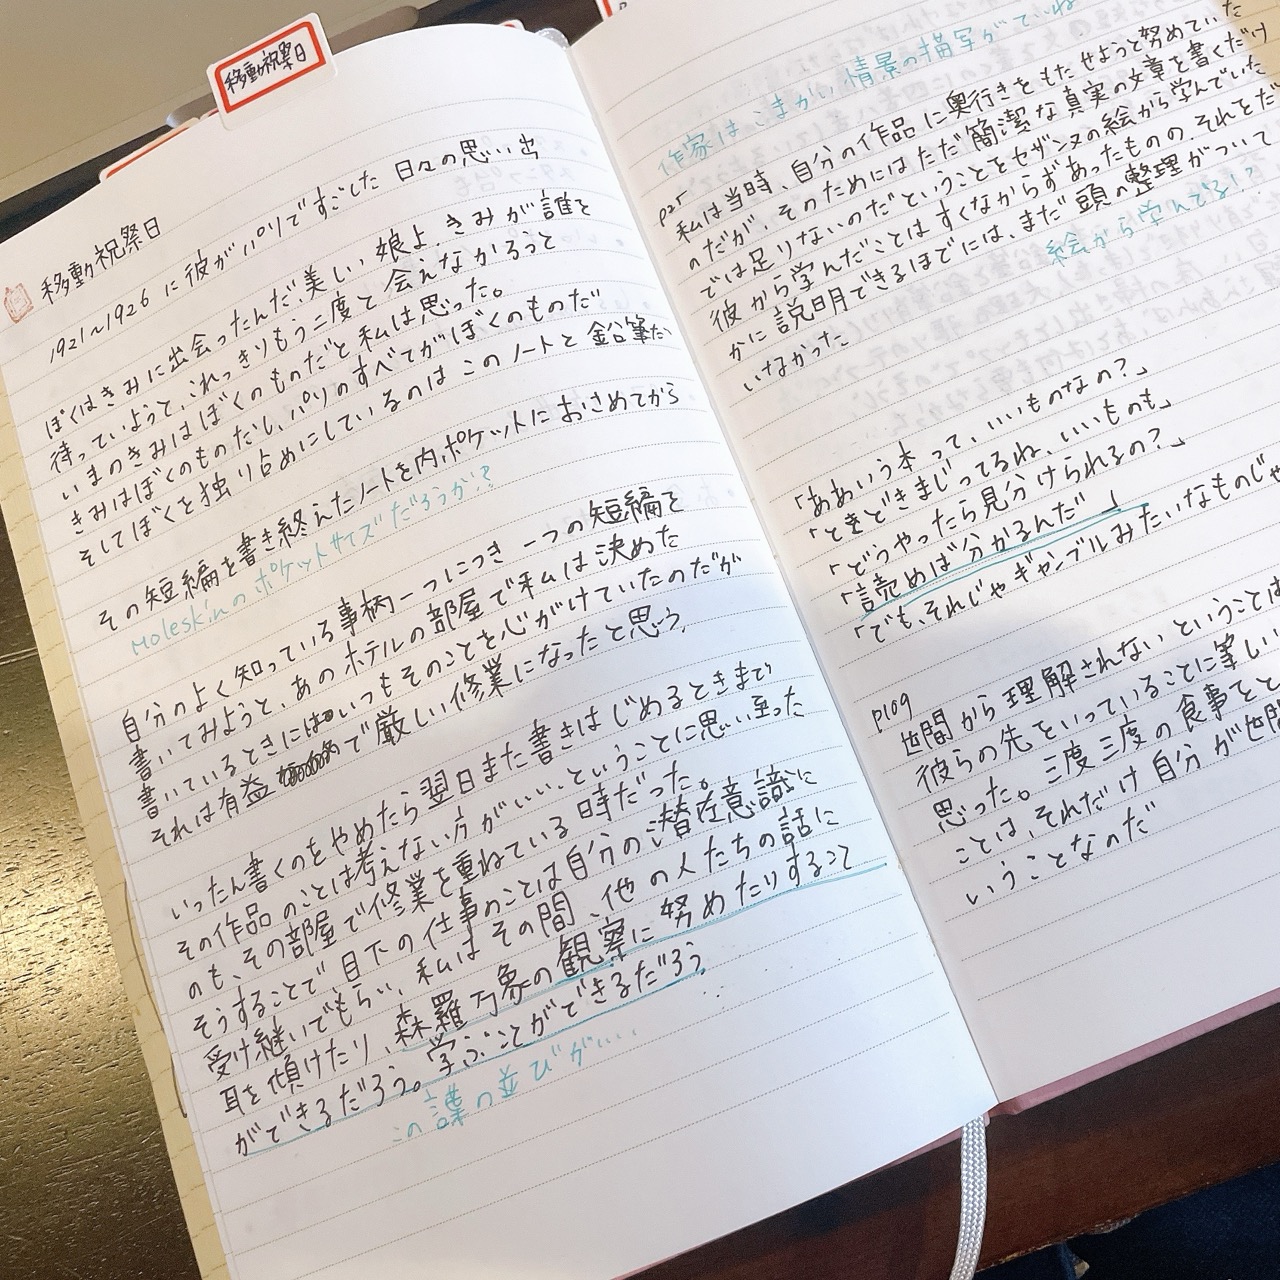 移動祝祭日
移動祝祭日
1921〜1926 に彼がパリですごした 日々の思い出
ぼくはきみに出会ったんだ、美しい 娘よ、きみが誰を
待っていようと、これっきりもう二度と 会えなかろうと
いまのきみはぼくのものだと私は思った。
きみはぼくのものだし、パリのすべてがぼくのものだ
そしてぼくを独り占めにしているのは このノートと 鉛筆だ
その短編を書き終えたノートを内ポケットにおさめてから
Moleskinのポケットサイズだろうか?
自分のよく知っている事柄一つにつき 一つの短編を
書いてみようと、あのホテルの部屋で私は決めた
書いているときにはいつもそのことを心がけていたのだが
それは有益で厳しい修業になったと思う。
いったん書くのをやめたら翌日また書きはじめるときまで
その作品のことは考えない方がいい、ということに思い至った
のも、その部屋で修業を重ねている時だった。
そうすることで、目下の仕事のことは自分の潜在意識に
受け継いでもらい、私はその間、他の人たちの話に
耳を傾けたり、森羅万象の観察に努めたりすること
ができるだろう。学ぶことができるだろう
この言葉の並びが…
作家はこまかい情景の描写がていね
p25
私は当時、自分の作品に奥行きをもたせようと努めていた
のだが、そのためにはただ簡潔な真実の文章を書くだけ
では足りないのだということをセザンヌの絵から学んでいた
彼から学んだことはすくなからずあったものの、それをだ
かに説明できるほどには、まだ頭の整理がついて
いなかった
絵から学んでる!?
「ああいう本って、いいものなの?」
「ときどきまじってるね、いいものも」
「どうやったら見分けられるの?」
「読めば分かるんだ」
「でも、それじゃギャンブルみたいなものじゃ
p109
世間から理解されないということは
彼らの先をいっていることに等しい
思った。三度三度の食事をと
ことは、それだけ自分が世間
いうことなのだ